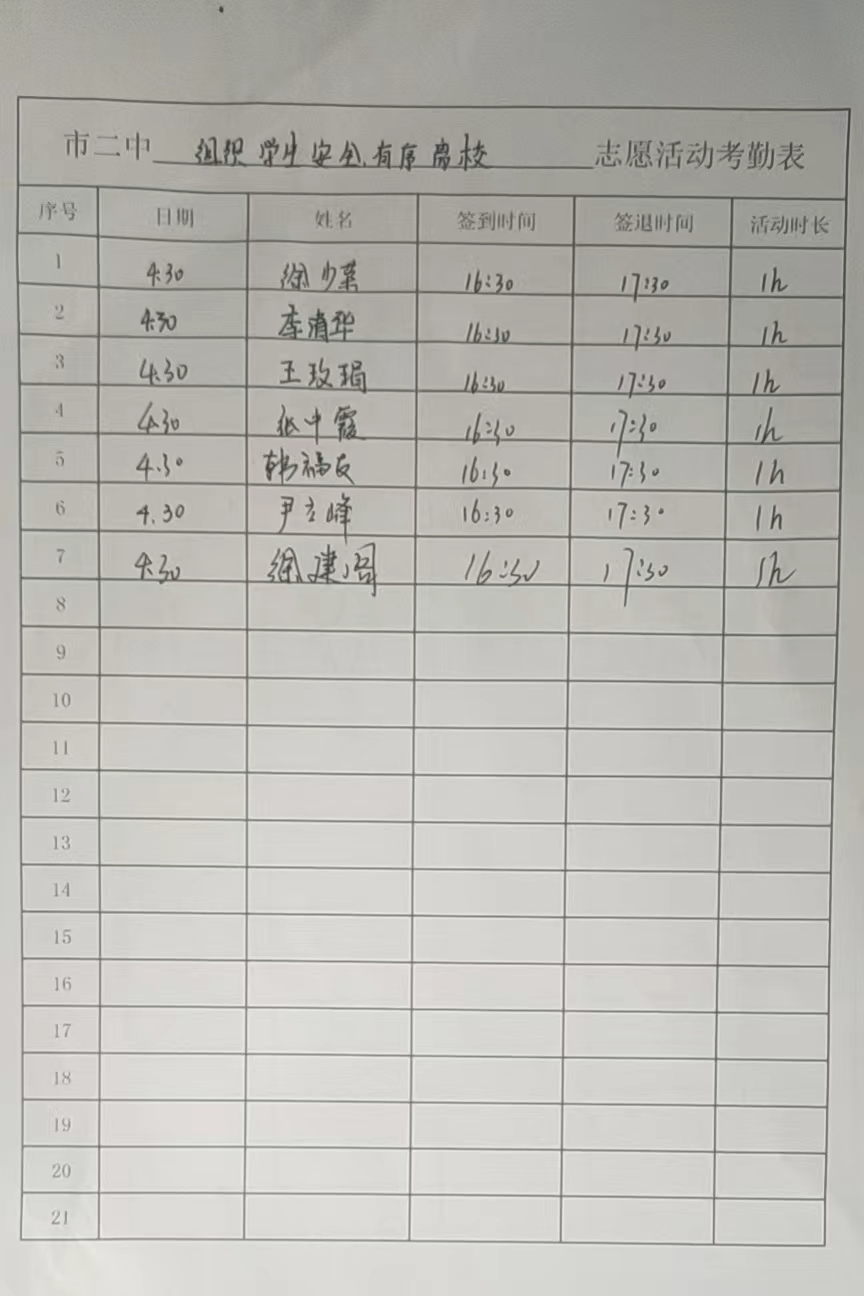 市二中 组织学生安全有序离校 志愿活动考勤表
序号 日期 姓名 签到时间 签退时间 活动时长
1 4.30 徐少荣 16:30 17:30 1h
2 4.30 李清华 16:30 17:30 1h
3 4.30 王玫瑁 16:30 17:30 1h
4 4.30 张中霞 16:30 17:30 1h
5 4.30 韩福友 16:30 17:30 1h
6 4.30 尹立峰 16:30 17:30 1h
7 4.30 徐建阁 16:30 17:30 1h
8
9
10
11
12
13
14
15
16
17
18
19
20
21